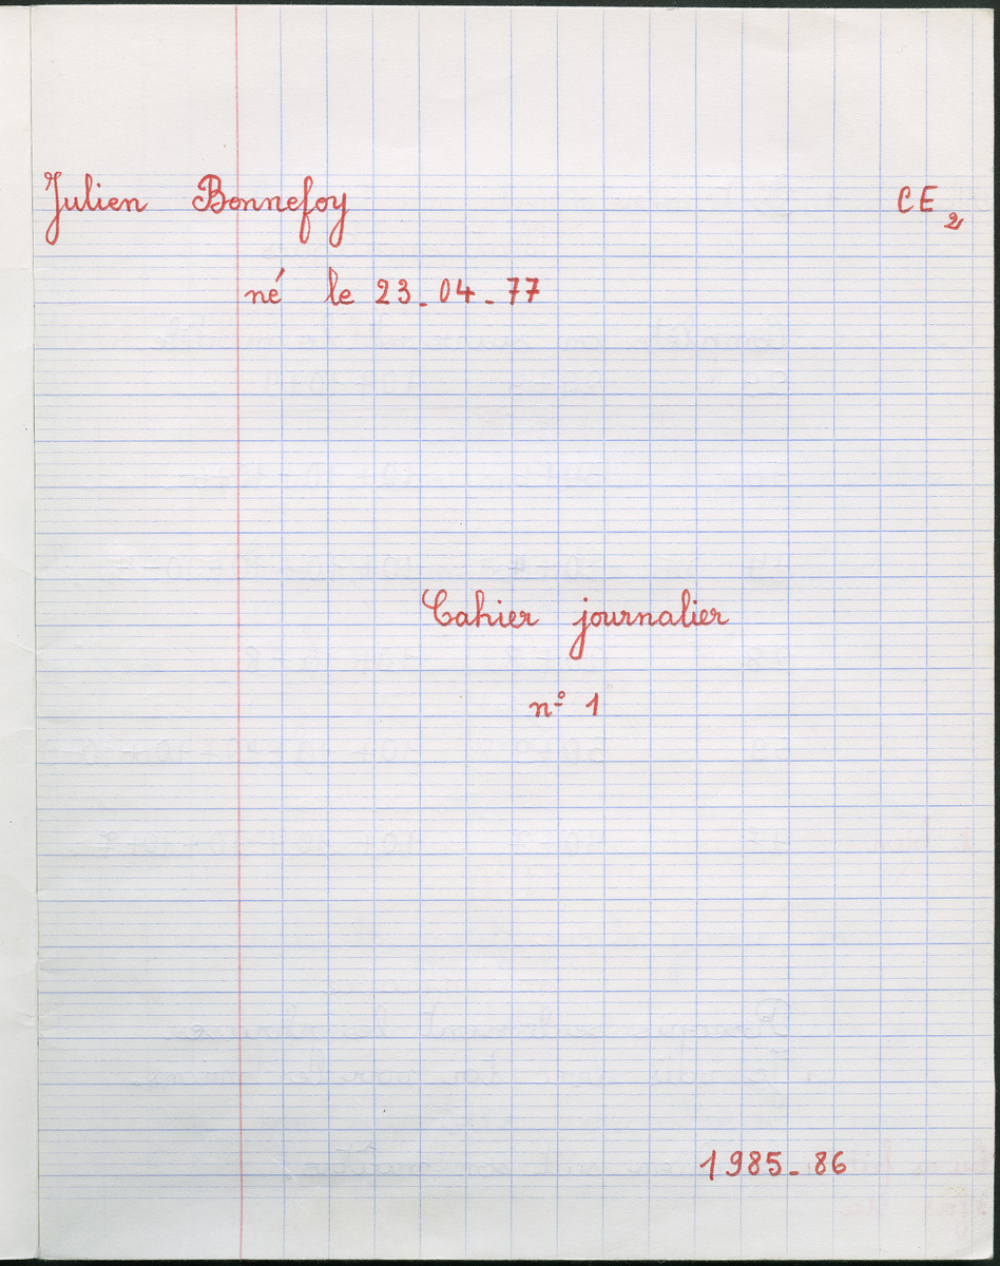 Julien Bonnefoy CE2
né le 23_04_77
Cahier journalier
nº 1
1985_86